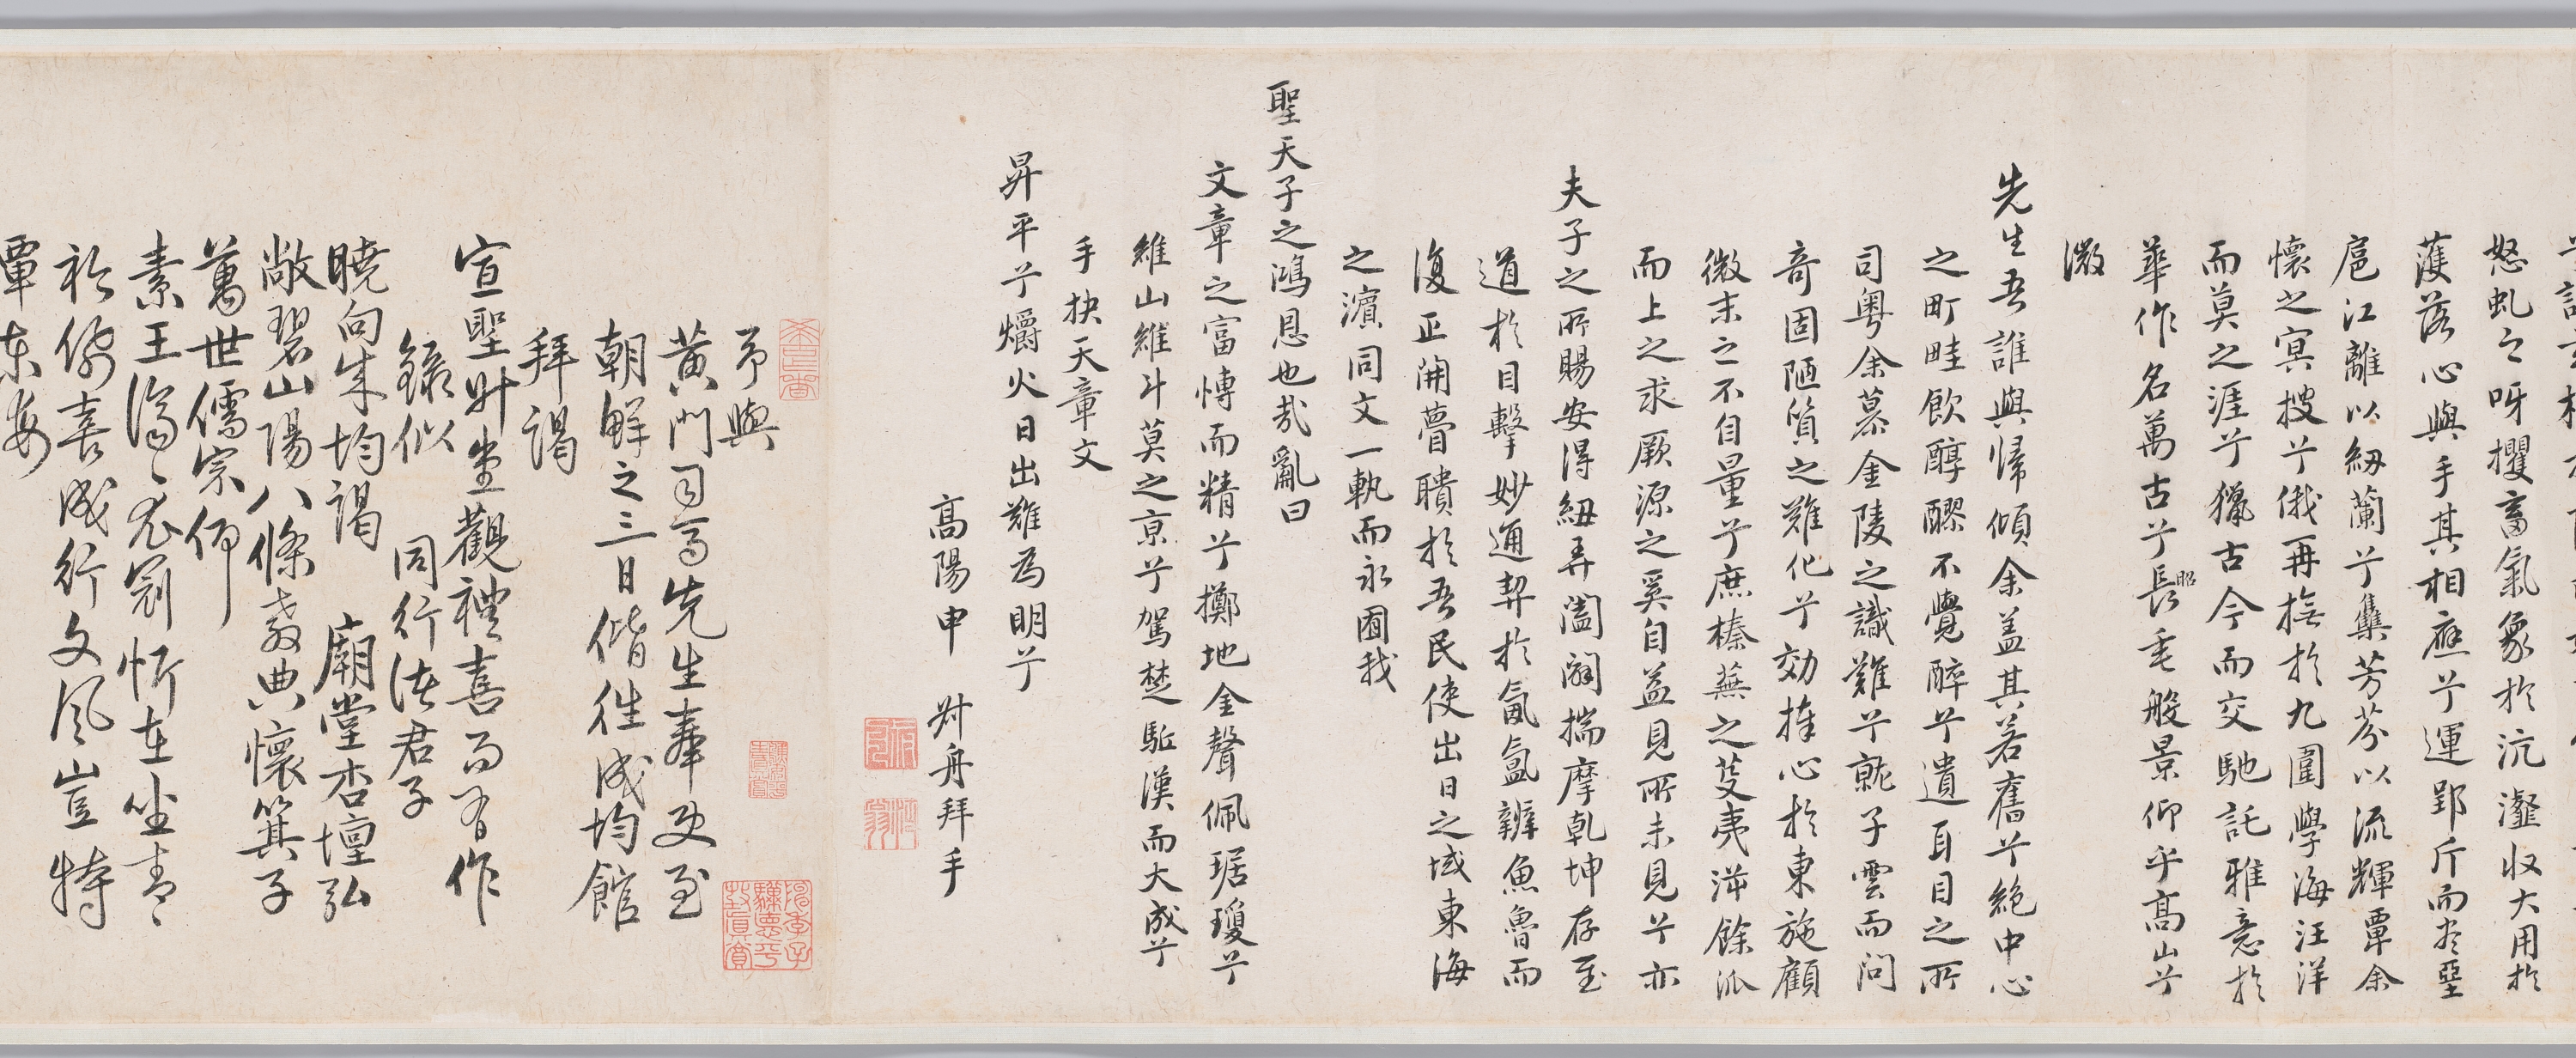 怒虬之呀攫畜氣象於沆瀣収大用於
蒦落心與手其相應兮運郢斤而堊
扈江離以紉蘭兮集芳芬以流輝覃余
懷之冥搜兮俄再撫於九圍學海汪洋
而莫之涯兮獵古今而交馳託雅意於
華作名萬古兮長昭垂般景仰乎髙山兮
微
先生吾誰與歸傾余盖其若舊兮絶中心
之町畦飲醇醪不覺醉兮遺耳目之所
司粤余慕金陵之識難兮就子雲而問
奇固陋質之難化兮効捧心於東施顧
微末之不自量兮庶榛蕪之芟夷沛餘派
而上之求厥源之奚自益見所未見兮亦
夫子之所賜安得紐弄闔闢揣摩乾坤存至
道於目擊妙通契於氤氲辨魚魯而
復正開瞢聵於吾民使出日之域東海
之濵同文一軌而永囿我
聖天子之鴻恩也㢤亂曰
文章之富慱而精兮擲地金聲佩琚瓊兮
維山維斗莫之京兮駕楚駈漢而大成兮
手抉天章文
昇平兮爝火日出難為明兮
髙陽申 叔舟拜手
予與
黄門司馬先生奉使至
朝鮮之三日偕徃成均館
拜謁
宣聖財坐觀禮喜而有作
錄似 同行諸君子
曉向成均謁 廟堂杏壇弘
敞碧山陽八條教典懷箕子
萬世儒宗仰
素王濟〻衣冠忻在坐青〻
衿佩喜成行文風豈特
覃東海